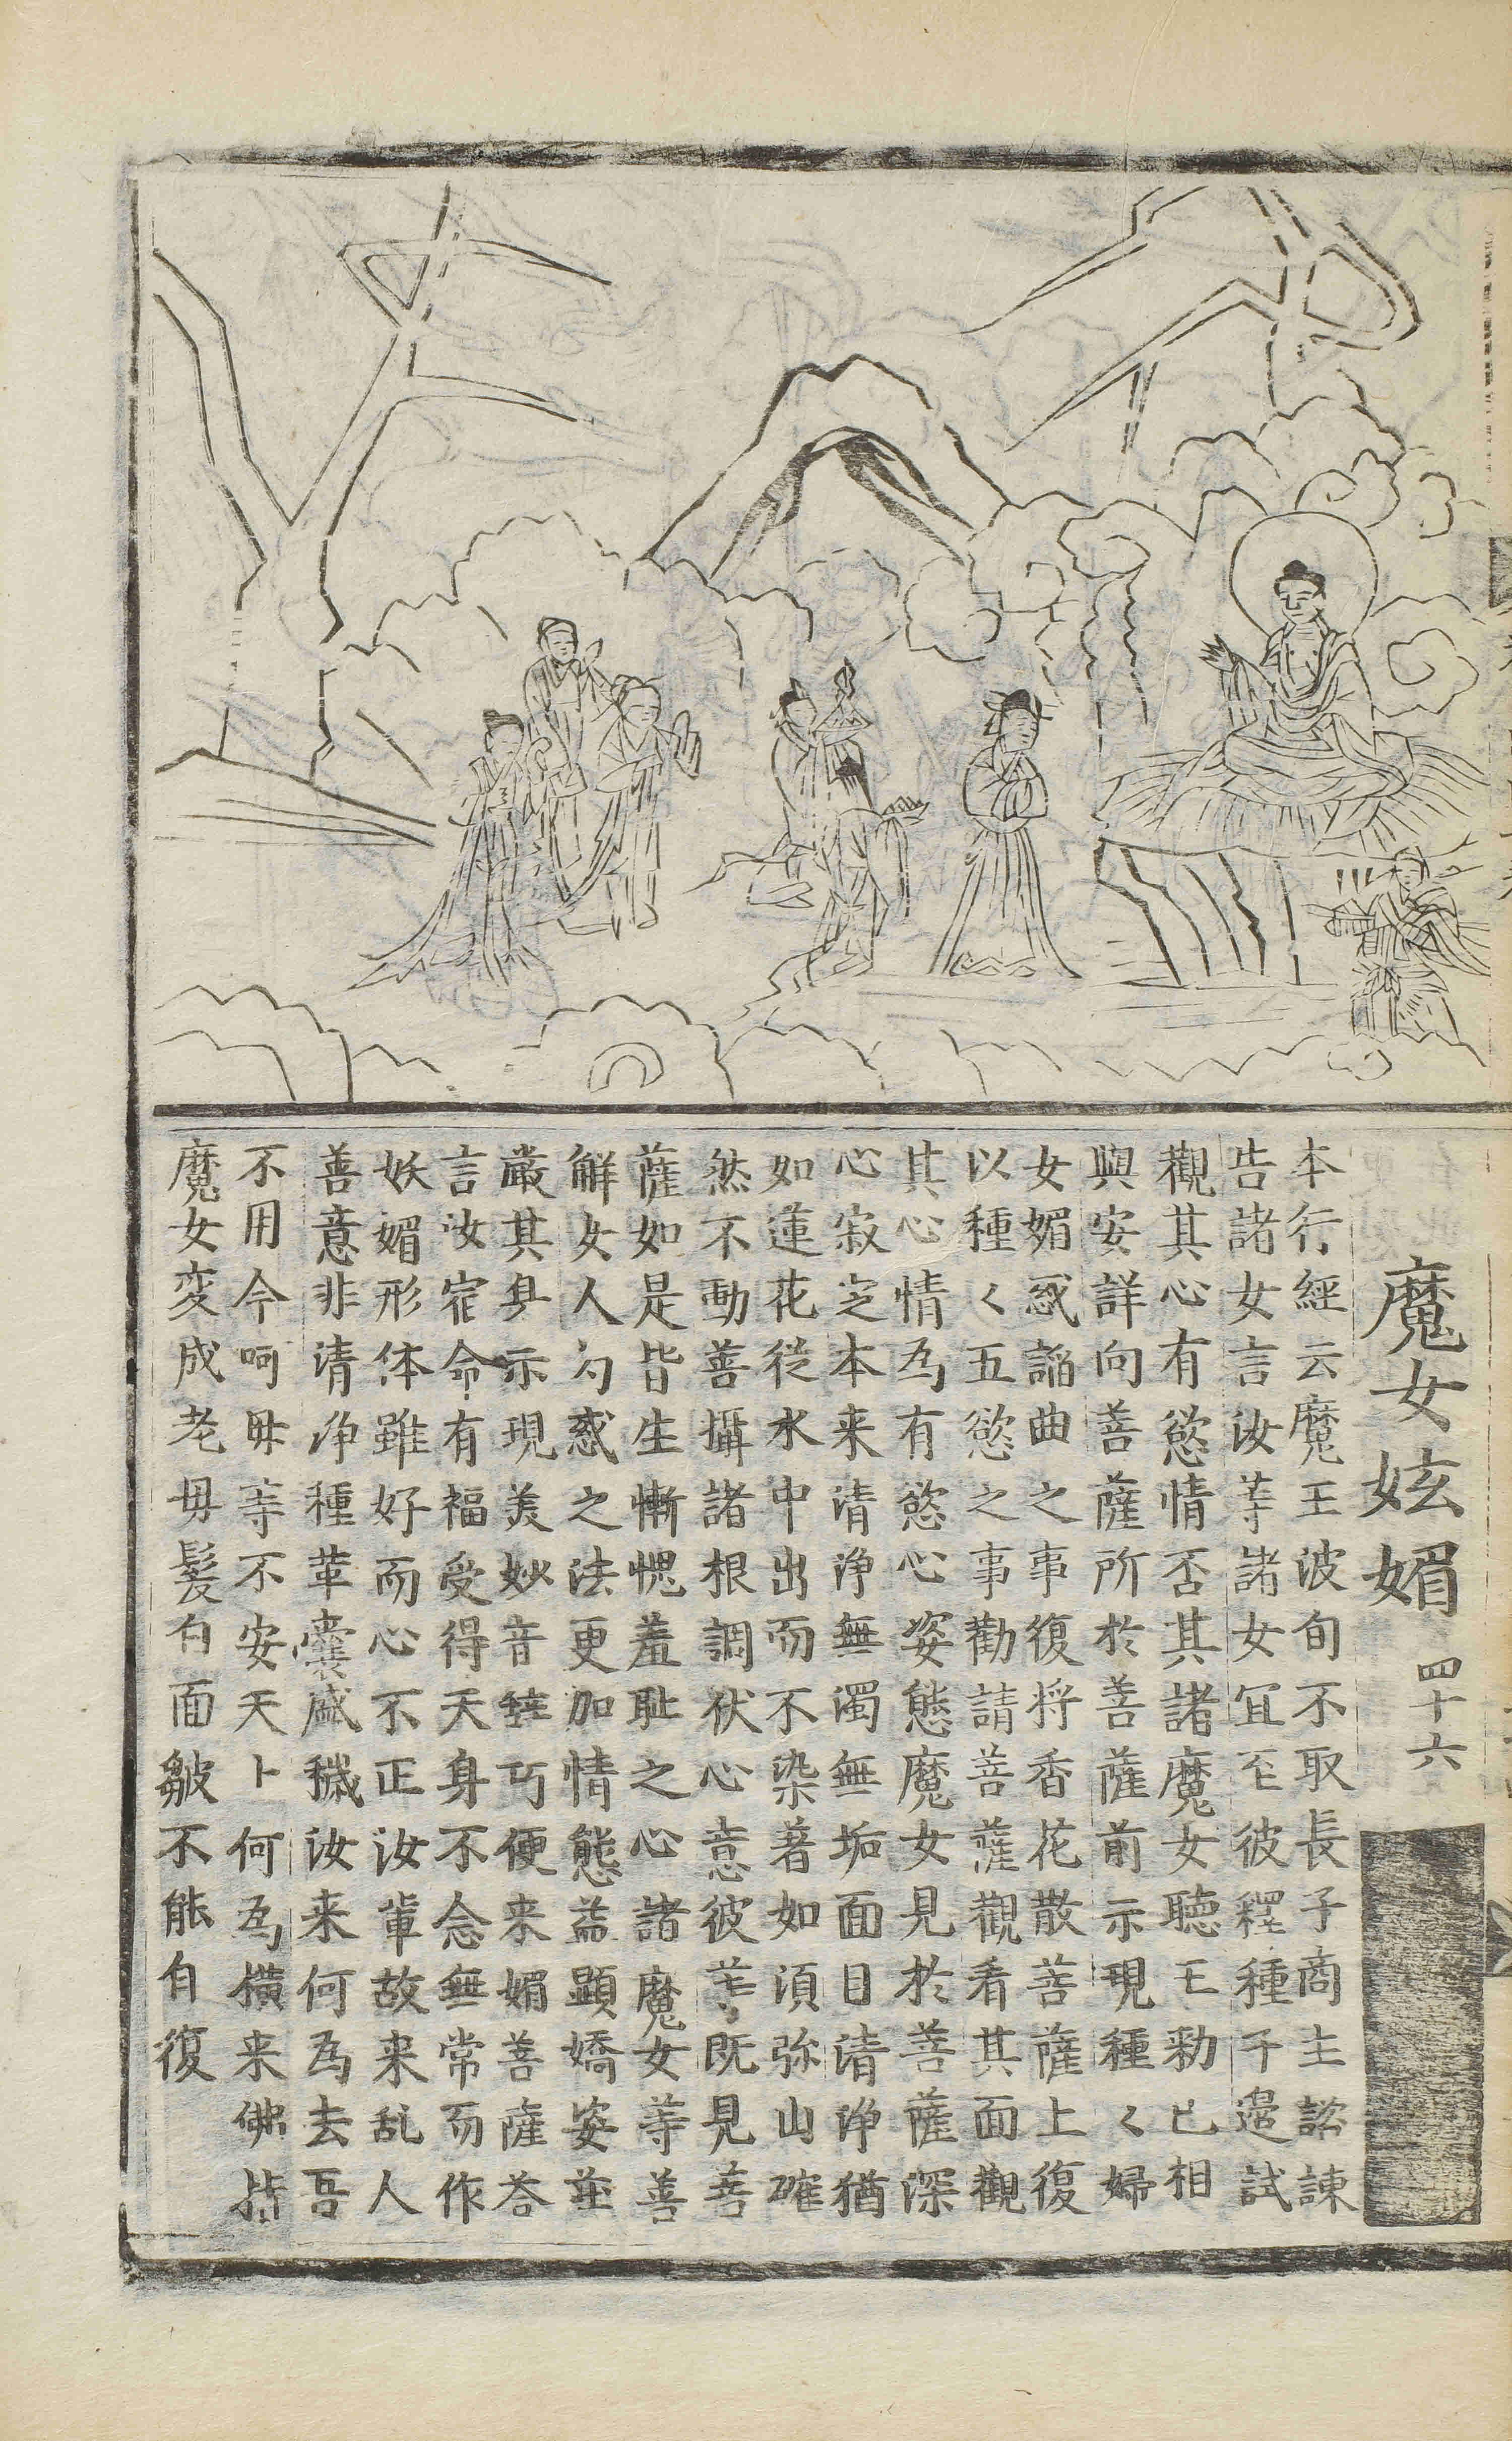 魔女妶媚 四十六
本行經云魔王波旬不取長子商主諮諫
告諸女言汝等諸女宜至彼釋種子邊試
觀其心有慾情否其諸魔女聽王勑已相
與安詳向菩薩所於菩薩前示現種〻婦
女媚惑謟曲之事復将香花散菩薩上復
以種〻五慾之事勸請菩薩觀看其面觀
其心情為有慾心姿態魔女見於菩薩深
心寂定本来清浄無濁無垢面目清浄猶
如蓮花從水中出而不染著如湏弥山確
然不動善攝諸根調伏心意彼等既見菩
薩如是皆生慚愧羞耻之心諸魔女等善
解女人幻惑之法更加情態益顕嬌姿並
嚴其身示現美妙音辝巧便来媚菩薩荅
言汝宿命有福受得天身不念無常而作
妖媚形体雖好而心不正汝軰故来乱人
善意非清浄種革囊盛穢汝来何為去吾
不用今呵毋等不安天卜何為横来佛指
魔女変成老毋髮白面皺不能自復